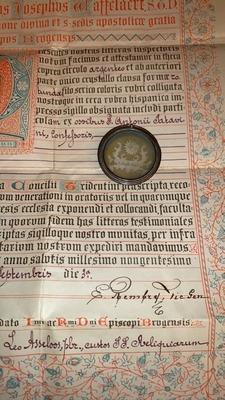 us Josephus Waffelaert S.T.D.
one divina et s. sedis apostolicæ gratia
pus Brugensis
nctis nostras litteras inspecturis
notum facimus et attestamur in theca
cuprea circulo argenteo et ab anteriori
parte unico crystallo clausa formæ ro-
tunda filo serico coloris rubri colligata
nostroque in cera rubra hispanica im-
presso sigillo obsignata includi parti-
culam ex ossibus S. Antonii Patavi
ni, Confessoris,
ta Concilii Tridentini præscripta reco-
m venerationi in oratoriis vel in quacunque
esis ecclesia exponendi et collocandi faculta-
n quorum fidem has litteras testimoniales
ptas sigilloque nostro munitas, per infra
tarium nostrum expediri mandavimus
anno salutis millesimo nongentesimo
Septembris die 3ª
E. Rembry, Vic. Gen.
dato Ill. ac R. D. ni Episcopi Brugensis.
Leo Asseloos, pbr., custos SS. Reliquiarum